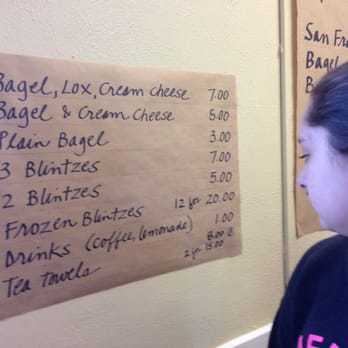 Bagel, Lox, Cream Cheese 7.00
Bagel & Cream Cheese 5.00
Plain Bagel 3.00
3 Blintzes 7.00
2 Blintzes 5.00
Frozen Blintzes 12 for 20.00
Drinks (coffee, lemonade) 1.00
Tea Towels 8.00 @
2 for 15.00
San Fra
Bagel
B